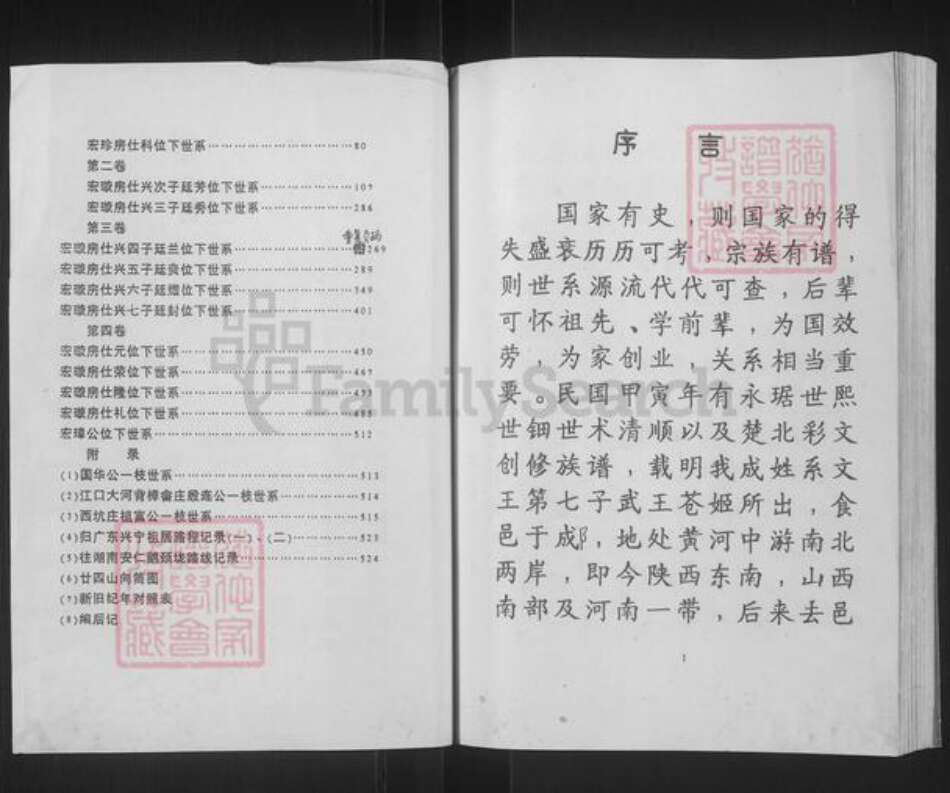 宏珍房仕科位下世系………………………80
第二卷
宏璇房仕兴次子廷芳位下世系………………107
宏璇房仕兴三子廷秀位下世系………………286
第三卷
宏璇房仕兴四子廷兰位下世系………………269
宏璇房仕兴五子廷赍位下世系………………289
宏璇房仕兴六子廷煌位下世系………………349
宏璇房仕兴七子廷封位下世系………………401
第四卷
宏璇房仕元位下世系………………………450
宏璇房仕荣位下世系………………………467
宏璇房仕隆位下世系………………………473
宏璇房仕礼位下世系………………………488
宏璋公位下世系………………………512
附 录
(1)国华公一枝世系………………………513
(2)江口大河背樟畲庄殿莲公一枝世系………………514
(3)西坑庄植富公一枝世系………………………515
(4)归广东兴宁祖居路程记录(一)、(二)………………523
(5)往湖南安仁鹅颈垅路线记录………………………524
(6)廿四山向简图
(7)新旧纪年对照表
(8)编后记
FamilySearch
序 言
国家有史，则国家的得
失盛衰历历可考，宗族有谱，
则世系源流代代可查，后辈
可怀祖先、学前辈，为国效
劳，为家创业，关系相当重
要。民国甲寅年有永琚世熙
世钿世术清顺以及楚北彩文
创修族谱，载明我成姓系文
王第七子武王苍姬所出，食
邑于成阝，地处黄河中游南北
两岸，即今陕西东南，山西
南部及河南一带，后来去邑
1